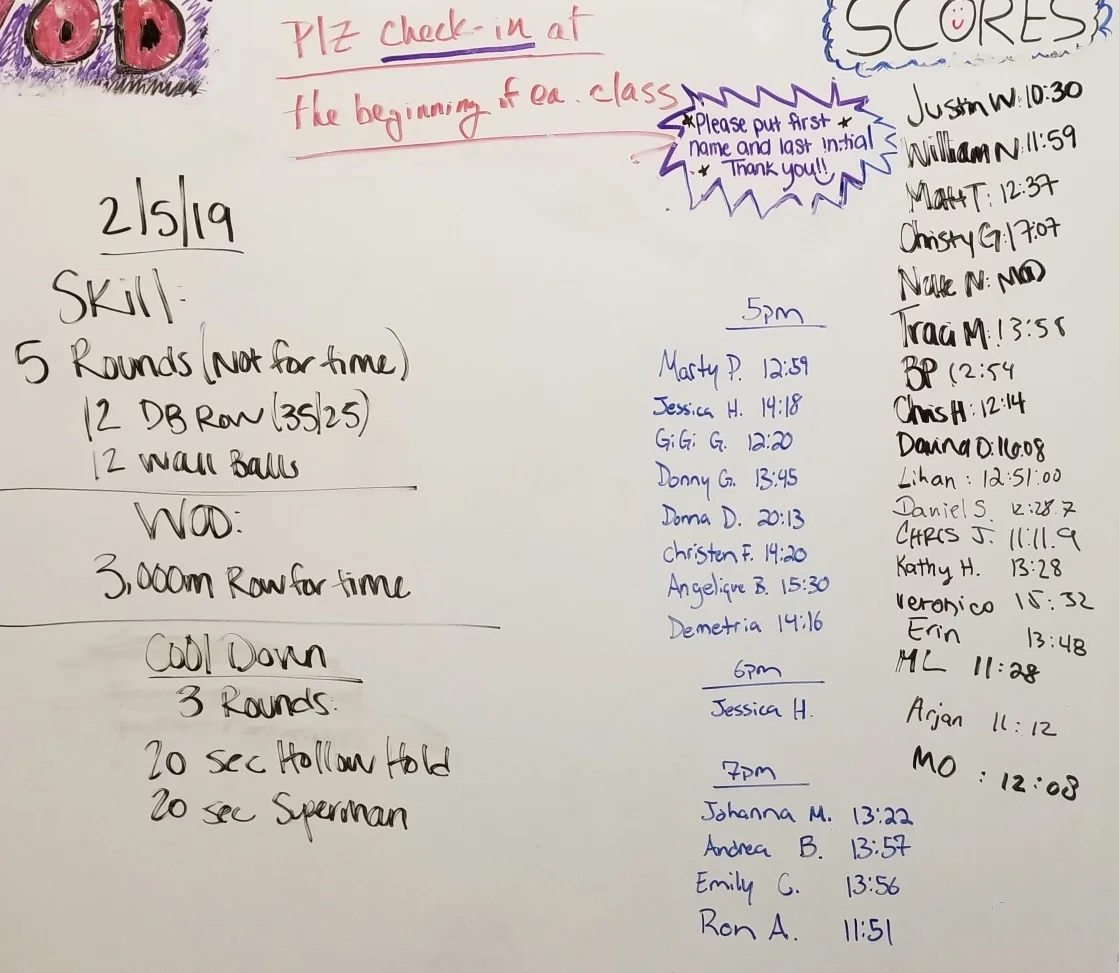 OD
Plz check-in at
the beginning of ea. class
SCORES
*Please put first *
name and last initial
* Thank you!!
2/5/19
Skill:
5 Rounds (Not for time)
12 DB Row (35/25)
12 Wall Balls
WOD:
3,000m Row for time
Cool Down
3 Rounds:
20 sec Hollow Hold
20 sec Superman
5pm
Marty P. 12:59
Jessica H. 14:18
GiGi G. 12:20
Donny G. 13:45
Donna D. 20:13
Christen F. 14:20
Angelique B. 15:30
Demetria 14:16
6pm
Jessica H.
7pm
Johanna M. 13:22
Andrea B. 13:57
Emily C. 13:56
Ron A. 11:51
Justin W: 10:30
William N: 11:59
Matt T: 12:37
Christy G: 17:07
Nate N:
Traci M: 13:58
BP 12:54
Chris H: 12:14
D: 16:08
Lihan : 12:51:00
Daniel S. 12:28.7
CHRIS J. 11:11.9
Kathy H. 13:28
Veronico 15:32
Erin 13:48
ML 11:28
Arjan 11:12
MO : 12:08